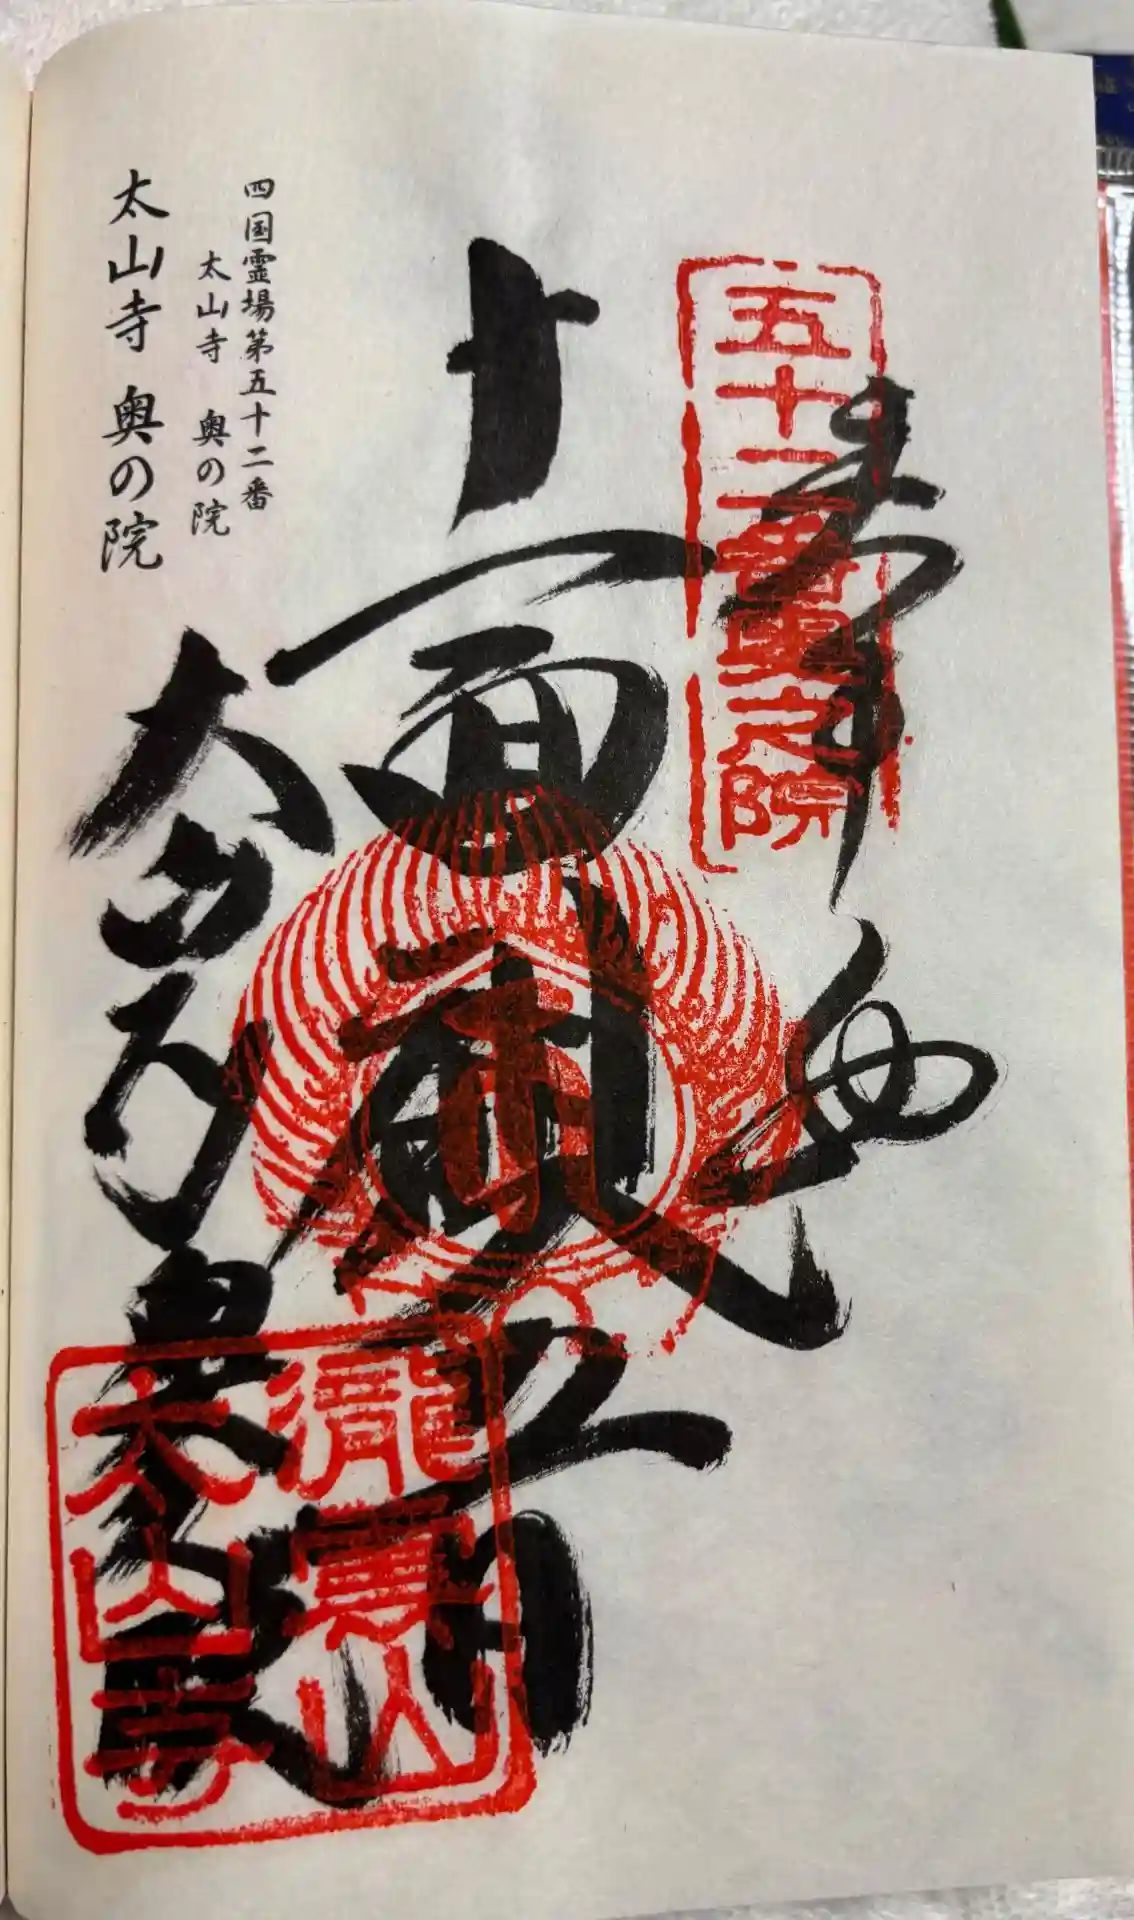 五十二番奥之院
奉拝
十一面観世音
四国霊場第五十二番
太山寺 奥の院
太山寺 奥の院
太山寺奥之院
瀧雲山
太山寺